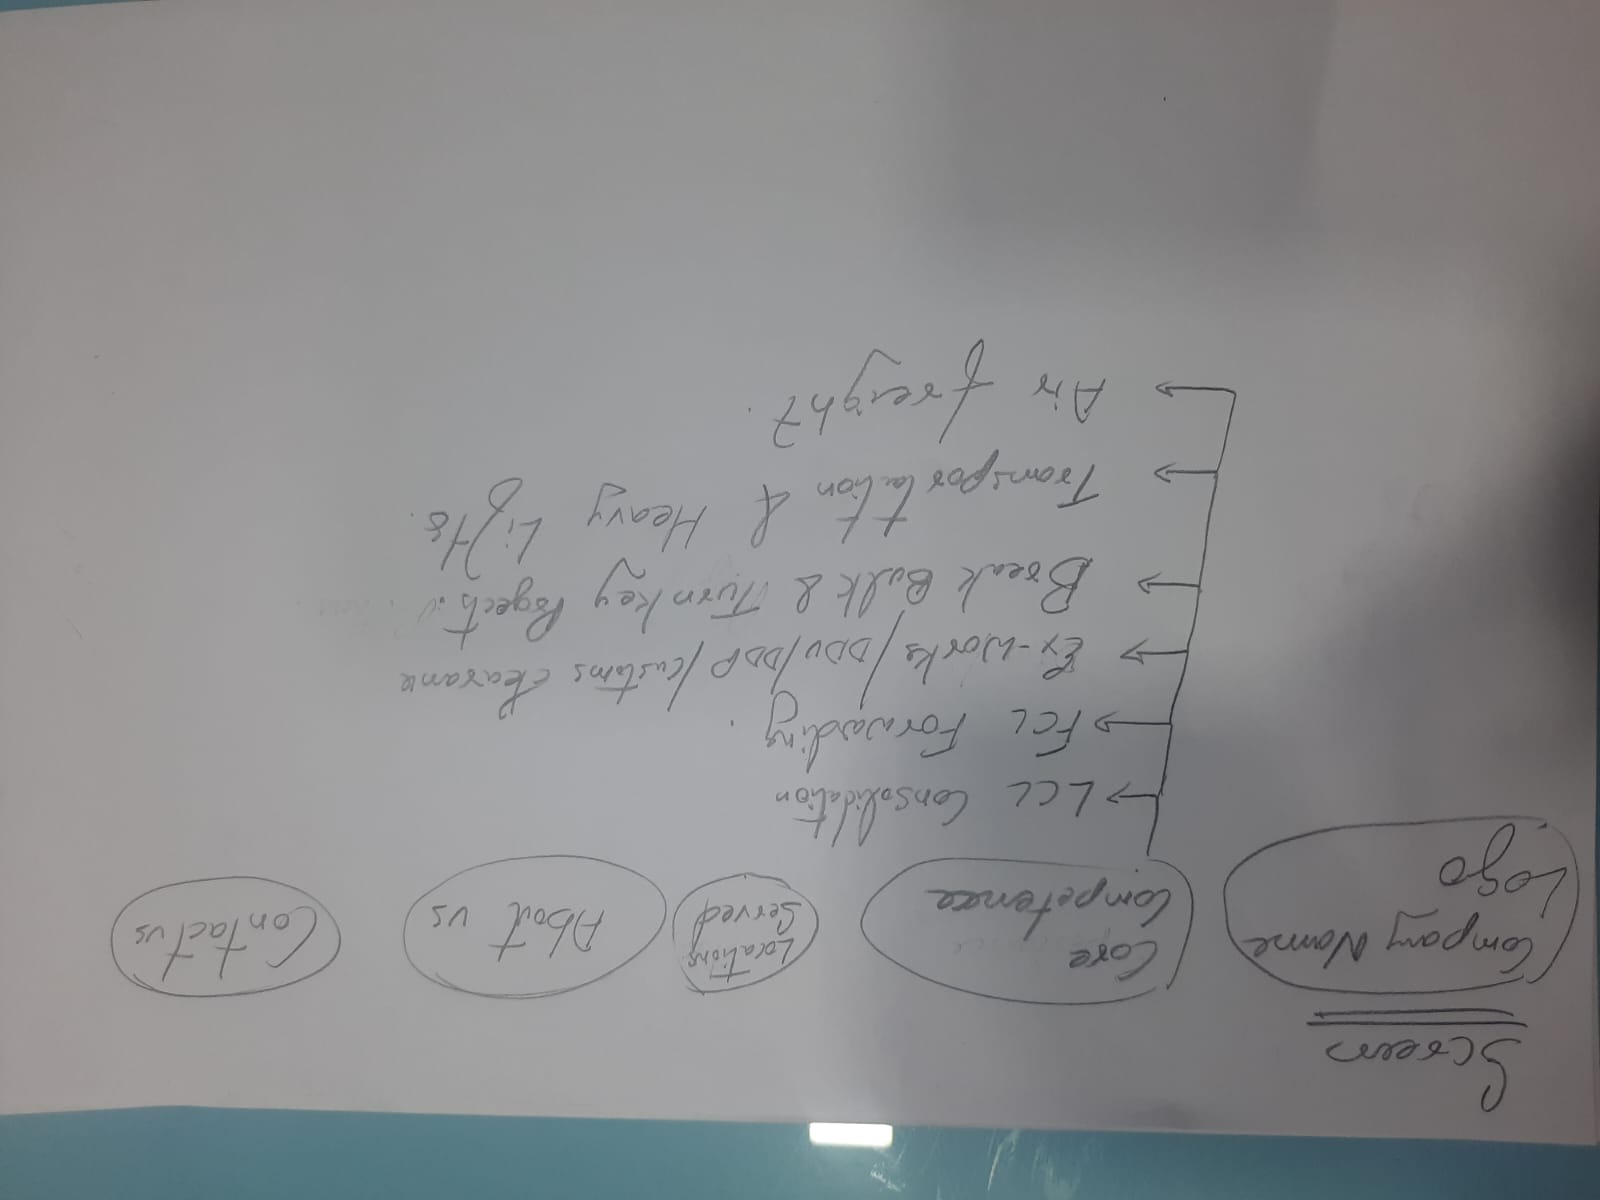 Screens
Company Name
Logo
Core
Competence
Locations
Served
About us
Contact us
LCL Consolidation
FCL Forwarding.
Ex-Works/DDU/DDP/Customs Clearance
Break Bulk & Turnkey Projects.
Transportation & Heavy Lifts.
Air freight.